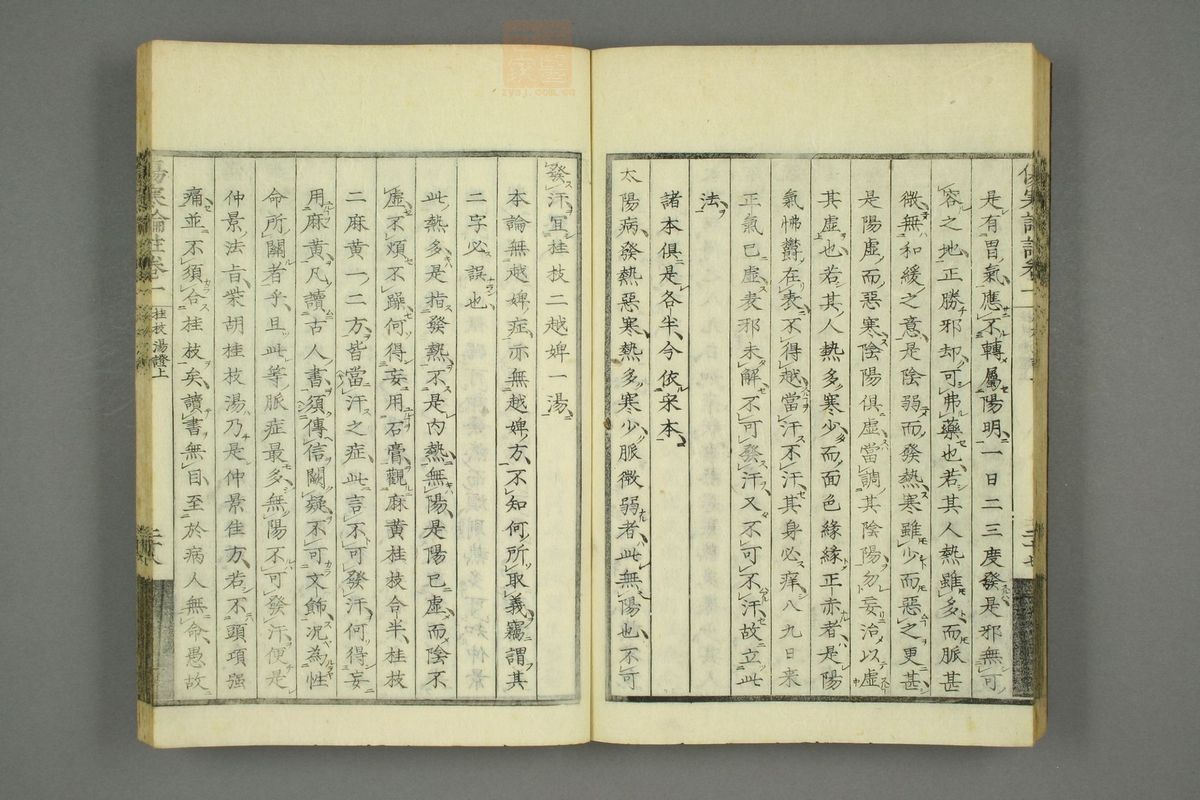 是有胃氣應不轉屬陽明一日二三度發是邪無可
容之地正勝邪却可弗藥也若其人熱雖多而脈甚
微無和緩之意是陰弱而發熱寒雖少而惡之更甚
是陽虛而惡寒陰陽俱虛當調其陰陽勿妄治以虛
其虛也若其人熱多寒少而面色緣緣正赤者是陽
氣怫欝在表不得越當汗不汗其身必痒八九日來
正氣已虛表邪未解不可發汗又不可不汗故立此
法
諸本俱是各半今依宋本
太陽病發熱惡寒熱多寒少脈微弱者此無陽也不可
發汗冝桂枝二越婢一湯
本論無越婢症亦無越婢方不知何所取義竊謂其
二字必誤也
此熱多是指發熱不是内熱無陽是陽已虛而陰不
虛不煩不躁何得妄用石膏觀麻黄桂枝合半桂枝
二麻黄一二方皆當汗之症此言不可發汗何得妄
用麻黄凡讀古人書須傳信闕疑不可文飾况為性
命所關者乎且此等脈症最多無陽不可發汗便是
仲景法旨柴胡桂枝湯乃是仲景佳方若不頭項强
痛並不須合桂枝矣讀書無目至於病人無命愚故
傷寒論註卷一
桂枝湯證上
二十八
zysj.com.cn